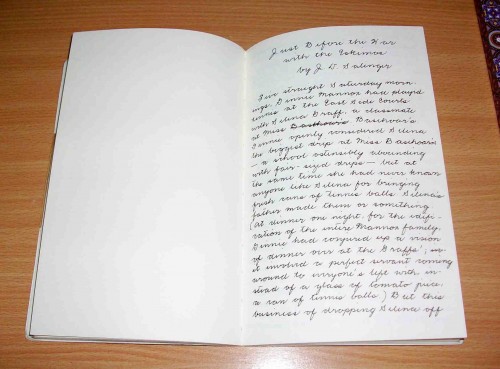 Just Before the War
with the Eskimos
by J. D. Salinger
Five straight Saturday morn-
ings, Ginnie Mannox had played
tennis at the East Side Courts
with Selena Graff, a classmate
at Miss Basehoar's
Ginnie openly considered Selena
the biggest drip at Miss Basehoar's
— a school ostensibly abounding
with fair-sized drips — but at
the same time she had never known
anyone like Selena for bringing
fresh cans of tennis balls. Selena's
father made them or something.
(At dinner one night, for the edifi-
cation of the entire Mannox family,
Ginnie had conjured up a vision
of dinner over at the Graffs';
it involved a perfect servant coming
around to everyone's left with, in-
stead of a glass of tomato juice,
a can of tennis balls.) But this
business of dropping Selena off